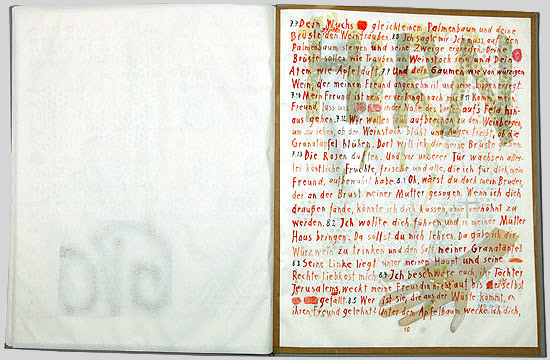 7.7 Dein Wuchs gleicht einem Palmenbaum und deine
Brüste den Weintrauben. 7.8 Ich sagte mir: Ich muss auf den
Palmenbaum steigen und seine Zweige ergreifen. Deine
Brüste sollen wie Trauben am Weinstock sein und Dein
Atem wie Apfelduft. 7.9 Und dein Gaumen wie vom würzigen
Wein, der meinem Freund angenehm ist und seine Lippen
7.10 Mein Freund ist mein, er verlangt nach mir. 7.11 Komm, mein
Freund, lass uns in der Nähe des Dorfs aufs Feld hin-
aus gehen. 7.12 Wir wollen früh aufbrechen zu den Weinbergen,
um zu sehen, ob der Weinstock blüht und Augen treibt, ob die
Granatäpfel blühen. Dort will ich dir meine Brüste geben.
7.13 Die Rosen duften. Und vor unserer Tür wachsen aller-
lei köstliche Früchte, frische und alte, die ich für dich, mein
Freund, aufbewahrt habe. 8.1 Oh, wärst du doch mein Bruder,
der an der Brust meiner Mutter gesogen. Wenn ich dich
draußen fände, könnte ich dich küssen, ohne verhöhnt zu
werden. 8.2 Ich wollte dich führen und in meiner Mutter
Haus bringen. Da sollst du mich lehren. Da gäbe ich dir
Würzwein zu trinken und den Saft meiner Granatäpfel.
8.3 Seine Linke liegt unter meinem Haupt und seine
Rechte liebkost mich. 8.4 Ich beschwöre euch, ihr Töchter
Jerusalems, weckt meine Freundin nicht auf bis es selbst
gefällt. 8.5 Wer ist sie, die aus der Wüste kommt, an
ihren Freund gelehnt? Unter dem Apfelbaum wecke ich dich,